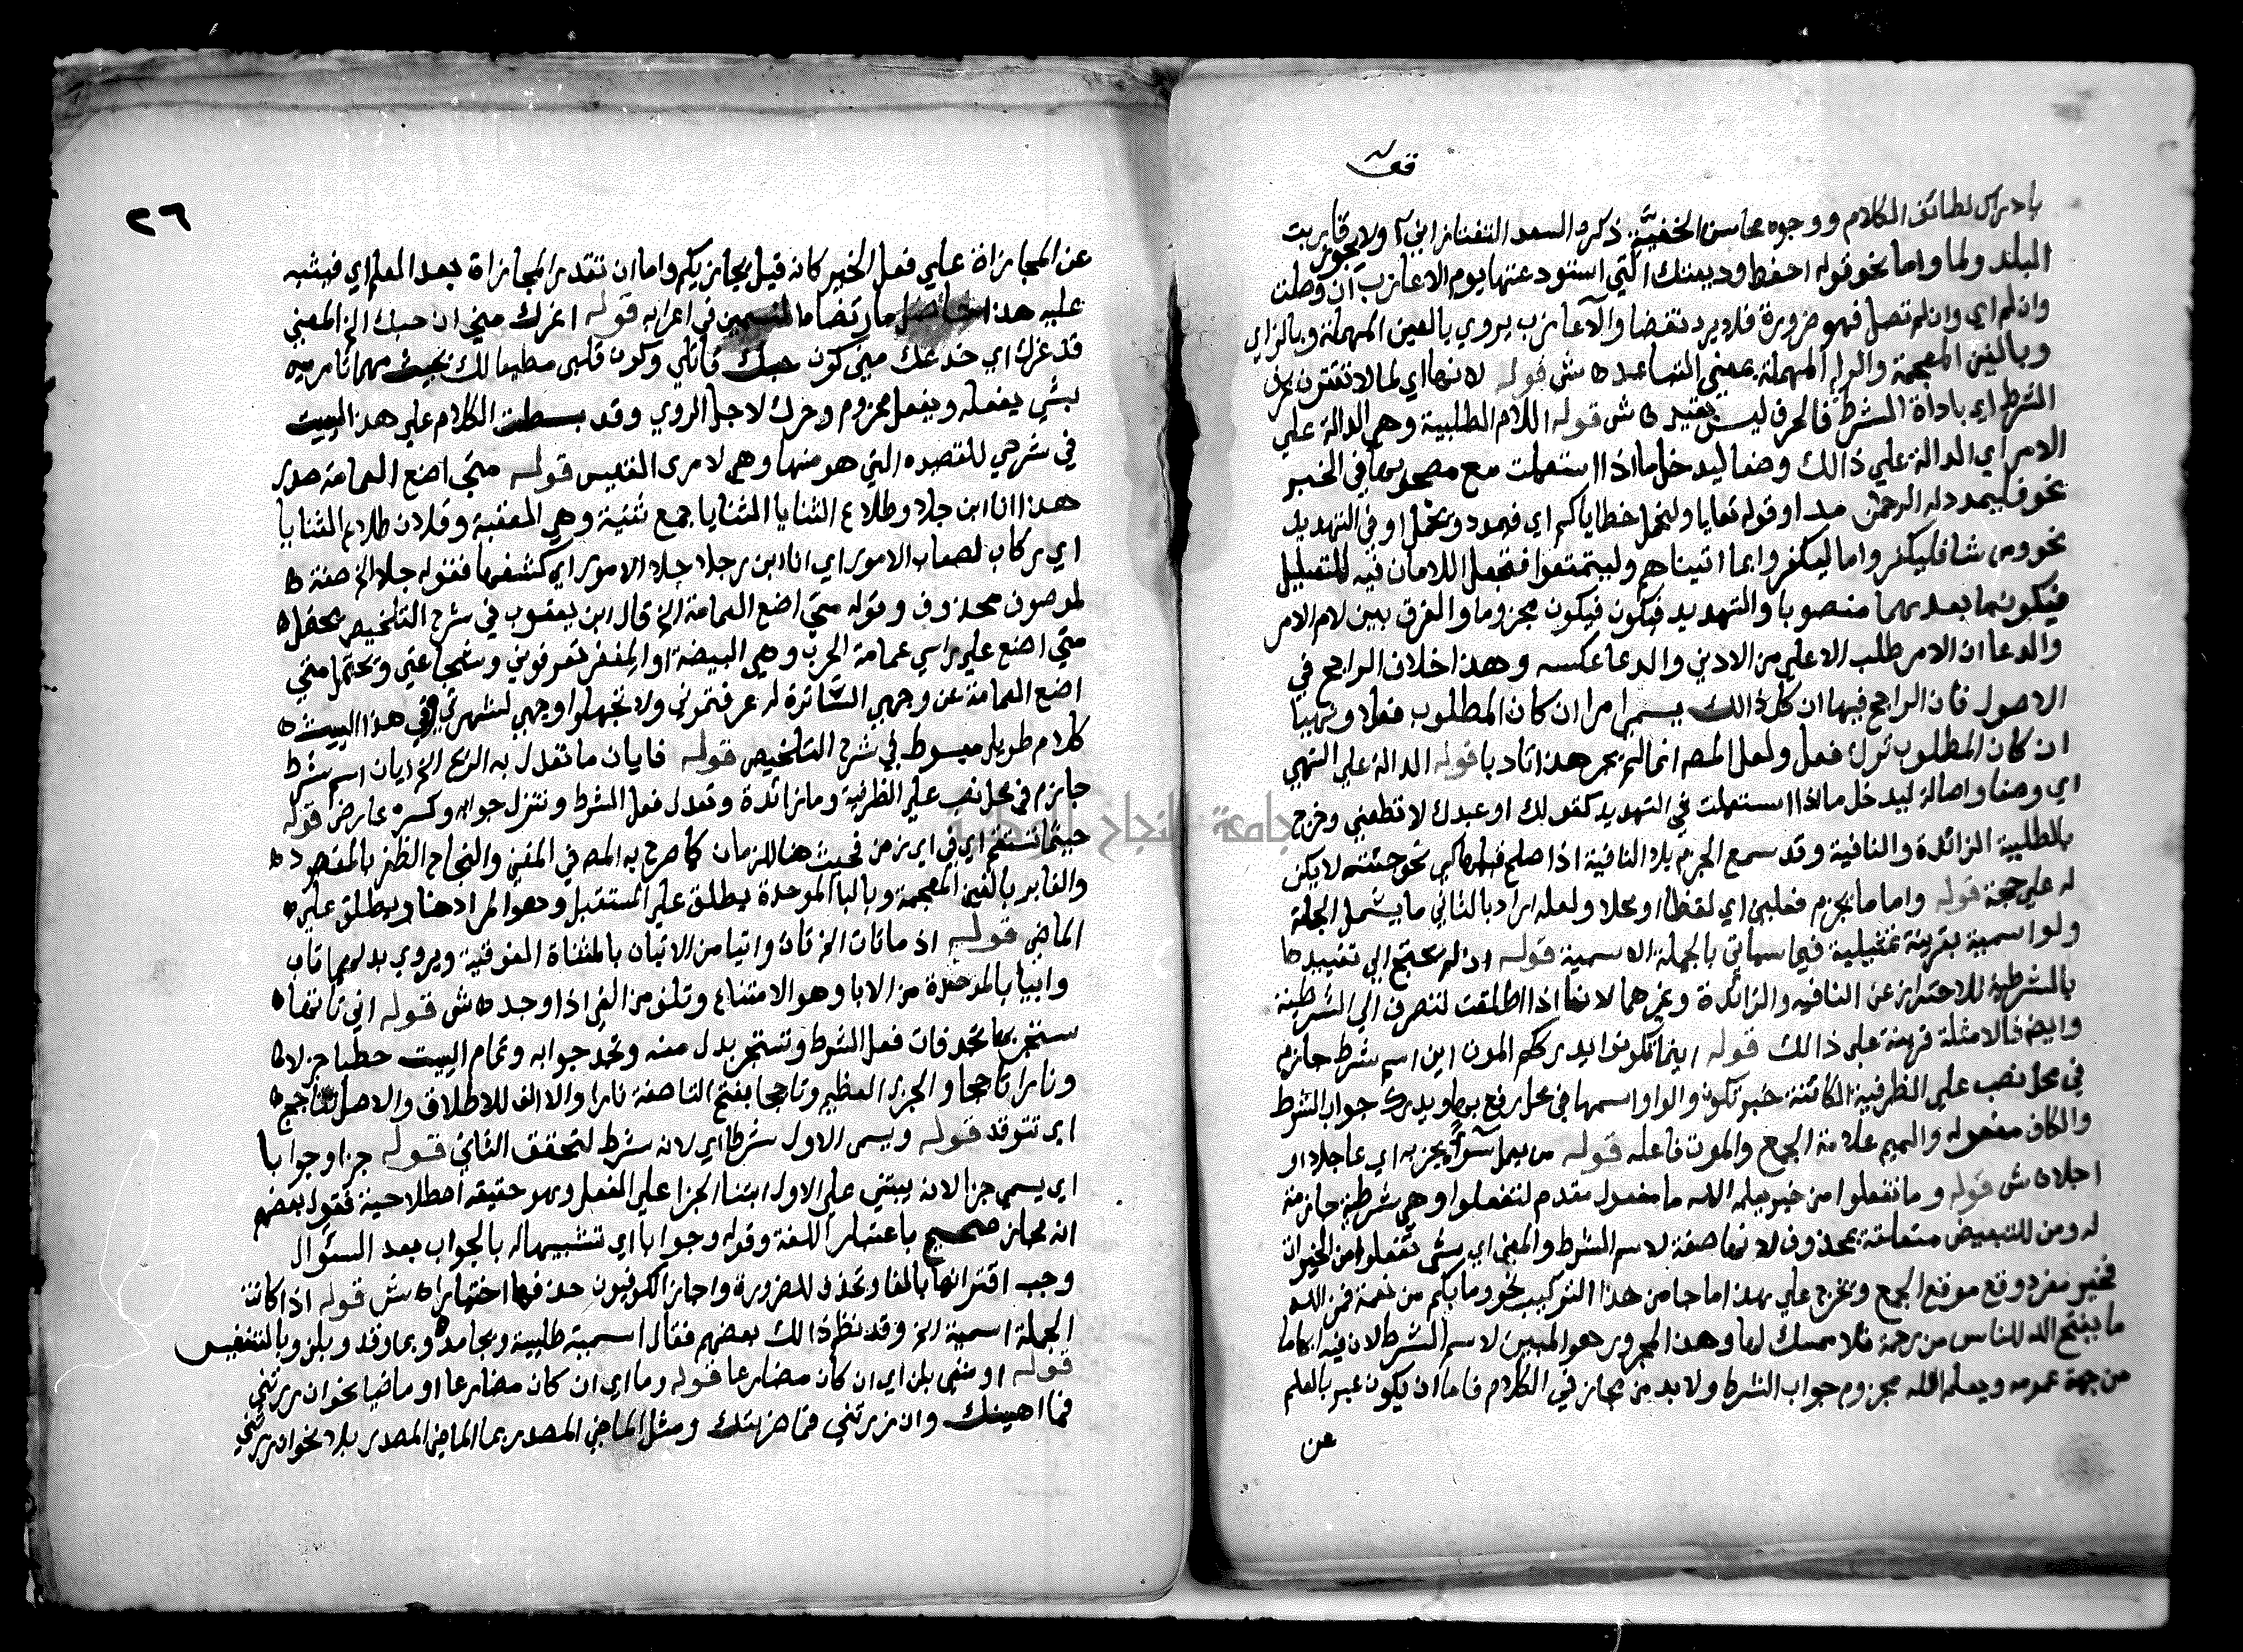 قف
بادراك لطائف الكلام ووجوه محاسن الخفية ذكره السعد التفتازاني ولا يجوز قاربت
البلد ولما واما نحو قوله احفظ وديعتك التي استودعتها يوم الاعازب ان وصلت
وان لم اي وان لم تصل فهو ضرورة فلا يرد نقضا والاعازب يروي بالعين المهملة وبالزاي
وبالغين المعجمة والراء المهملة بمعني التباعد ش قوله لانها اي لما لا تقترن بحرف
الشرط اي باداة الشرط فالحرف ليس بقيد ش قوله اللام الطلبية وهي الدالة علي
الامر اي الدالة علي ذالك وضعا ليدخل ما اذا استعملت مع مصحوبها في الخبر
نحو فليمدد له الرحمن مدا وقوله تعايا ولنحمل خطاياكم اي فيمدد ونحمل او في التهديد
نحو ومن شا فليكفر واما ليكفروا بما اتيناهم وليتمتعوا فتجعل اللامان فيه للتعليل
فيكون ما بعدهما منصوبا والتهديد فيكون فيكون مجزوما والفرق بين لام الامر
والدعا ان الامر طلب الاعلي من الادني والدعا عكسه وهذا خلاف الراجح في
الاصول فان الراجح فيها ان كل ذالك يسمي امرا ان كان المطلوب فعلا ونهيا
ان كان المطلوب ترك فعل ولعل المص انما لم يجر هذا تادبا قوله الدالة علي النهي
اي وضعا واصالة ليدخل ما اذا استعملت في التهديد كقولك لعبدك لا تطعني وخرج
بالطلبية الزائدة والنافية وقد سمع الجزم بلا النافية اذا صلح قبلها كي نحو جئته لا يكن
له علي حجة قوله واما ما يجزم فعلين اي لفظا او محلا ولعله اراد بالثاني ما يشمل الجملة
ولو اسمية بقرينة تمثيلية فيما سياتي بالجملة الاسمية قوله اذ لم يحتج الي تقييد
بالشرطية للاحتراز عن النافيه والزائدة وغيرهما لانها اذا اطلقت تنصرف الي الشرطية
وايضا فالامثلة قرينة علي ذالك قوله اينما تكونوا يدرككم الموت اين اسم شرط جازم
في محل نصب علي الظرفية الكائنة خبر تكون والواو اسمها في محل رفع بها ويدرك جواب الشرط
والكاف مفعوله والميم علامة الجمع والموت فاعله قوله من يعمل سوأ يجز به اي عاجلا او
اجلا ش قوله وما تفعلوا من خير يعلمه الله ما مفعول مقدم لتفعلوا وهي شرطية جازمة
له ومن للتبعيض متعلقة بمحذوف لانها صفة لاسم الشرط والمعني اي شي تفعلوا من الخيرات
فخير مفرد وقع موقع الجمع وتخرج علي هذا ما جا من هذا التركيب نحو وما بكم من نعمة فمن الله
ما يفتح الله للناس من رحمة فلا ممسك لها وهذا المجرور هو المبين لاسم الشرط لان فيه ابهاما
من جهة عمومه ويعلمه الله مجزوم جواب الشرط ولا بد من مجاز في الكلام فاما ان يكون عبر بالعلم
عن
٢٦
عن المجازاة علي فعل الخير كانه قيل يجازيكم واما ان تقدر المجازاة بعد العلم اي فيثيبه
عليه هذا حاصل ما ارتضاه السمين في اعرابه قوله اغرك مني ان حبك الخ المعني
قد غرك اي خدعك مني كون حبك قاتلي وكون قلبي مطيعا لك بحيث مهما تامريه
بشي يفعله ويفعل مجزوم وحرك لاجل الروي وقد بسطت الكلام علي هذا البيت
في شرحي للقصيده التي هو منها وهي لامرى القيس قوله متي اضع العمامة صدر
هذا انا ابن جلا وطلاع الثنايا الثنايا جمع ثنية وهي العقبة وفلان طلاع الثنايا
اي ركاب لصعاب الامور اي انا ابن رجل جلا الامور اي كشفها فقوله جلا الخ صفة
لموصوف محذوف وقوله متي اضع العمامة الخ قال ابن يعقوب في شرح التلخيص يحتمل
متي اضع علي راسي عمامة الحرب وهي البيضة او المغفر تعرفوني وشجاعتي ويحتمل متي
اضع العمامة عن وجهي الساترة له عرفتموني ولا تجهلوا وجهي لشهرتي وفي هذا البيت
كلام طويل مبسوط في شرح التلخيص قوله فايان ما تعدل به الريح الخ ايان اسم شرط
جازم في محل نصب علي الظرفية وما زائدة وتعدل فعل الشرط وتنزل جوابه وكسره عارض قوله
حيثما تستقم اي في اي زمن فحيث هنا للزمان كما صرح به المص في المغني والنجاح الظفر بالمقصود
والغابر بالغين المعجمة وبالبا الموحدة يطلق علي المستقبل وهو المراد هنا ويطلق علي
الماضي قوله اذ ما تات الخ تات واتيا من الاتيان بالمثناة الفوقية ويروي بدلهما تاب
وابيا بالموحدة من الابا وهو الامتناع وتلف من الفي اذا وجد ش قوله اني تاتها
ستجر بها تجد فات فعل الشرط وتستجر بدل منه وتجد جوابه وتمام البيت حطبا جزلا
ونارا تاججا والجزل العظيم وتاججا بفتح التا صفة نارا والالف للاطلاق والاصل تتاجج
اي تتوقد قوله ويسمي الاول شرطا اي لانه شرط لتحقق الثاني قوله جزا وجوابا
اي يسمي جزا لانه يبتني علي الاول ابتنا الجزا علي الفعل وهو حقيقه اصطلاحية فقول بعضهم
انه مجاز صحيح باعتبار اللغة وقوله وجوابا اي تشبيها له بالجواب بعد السئوال
وجب اقترانها بالفا وتحذف للضرورة واجاز الكوفيون حذفها اختيارا ش قوله اذا كانت
الجملة اسمية الخ وقد نظم ذالك بعضهم فقال اسمية طلبية وبجامد وبما وقد وبلن وبالتنفيس
قوله او منفي بلن اي ان كان مضارعا قوله وما اي ان كان مضارعا او ماضيا نحو ان زرتني
فما اهينك وان زرتني فما ضربتك ومثل الماضي المصدر بما الماضي المصدر بلا نحو ان زرتني
جامعة النجاح الوطنية